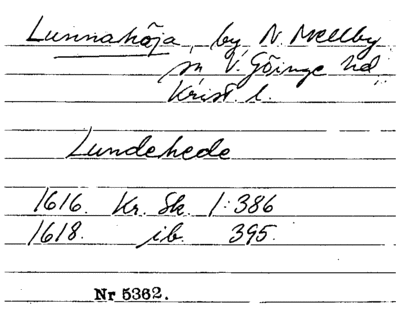 Lunnahöja, by, N. Mellby
sn V. Göinge hd,
Krist. l.
Lundehede
1616. Kr. Sk. 1:386
1618. ib. 395.
Nr 5362.